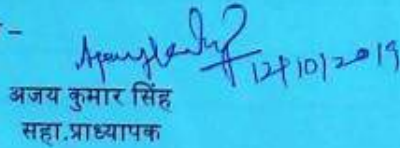 12/10/2019
अजय कुमार सिंह
सहा.प्राध्यापक